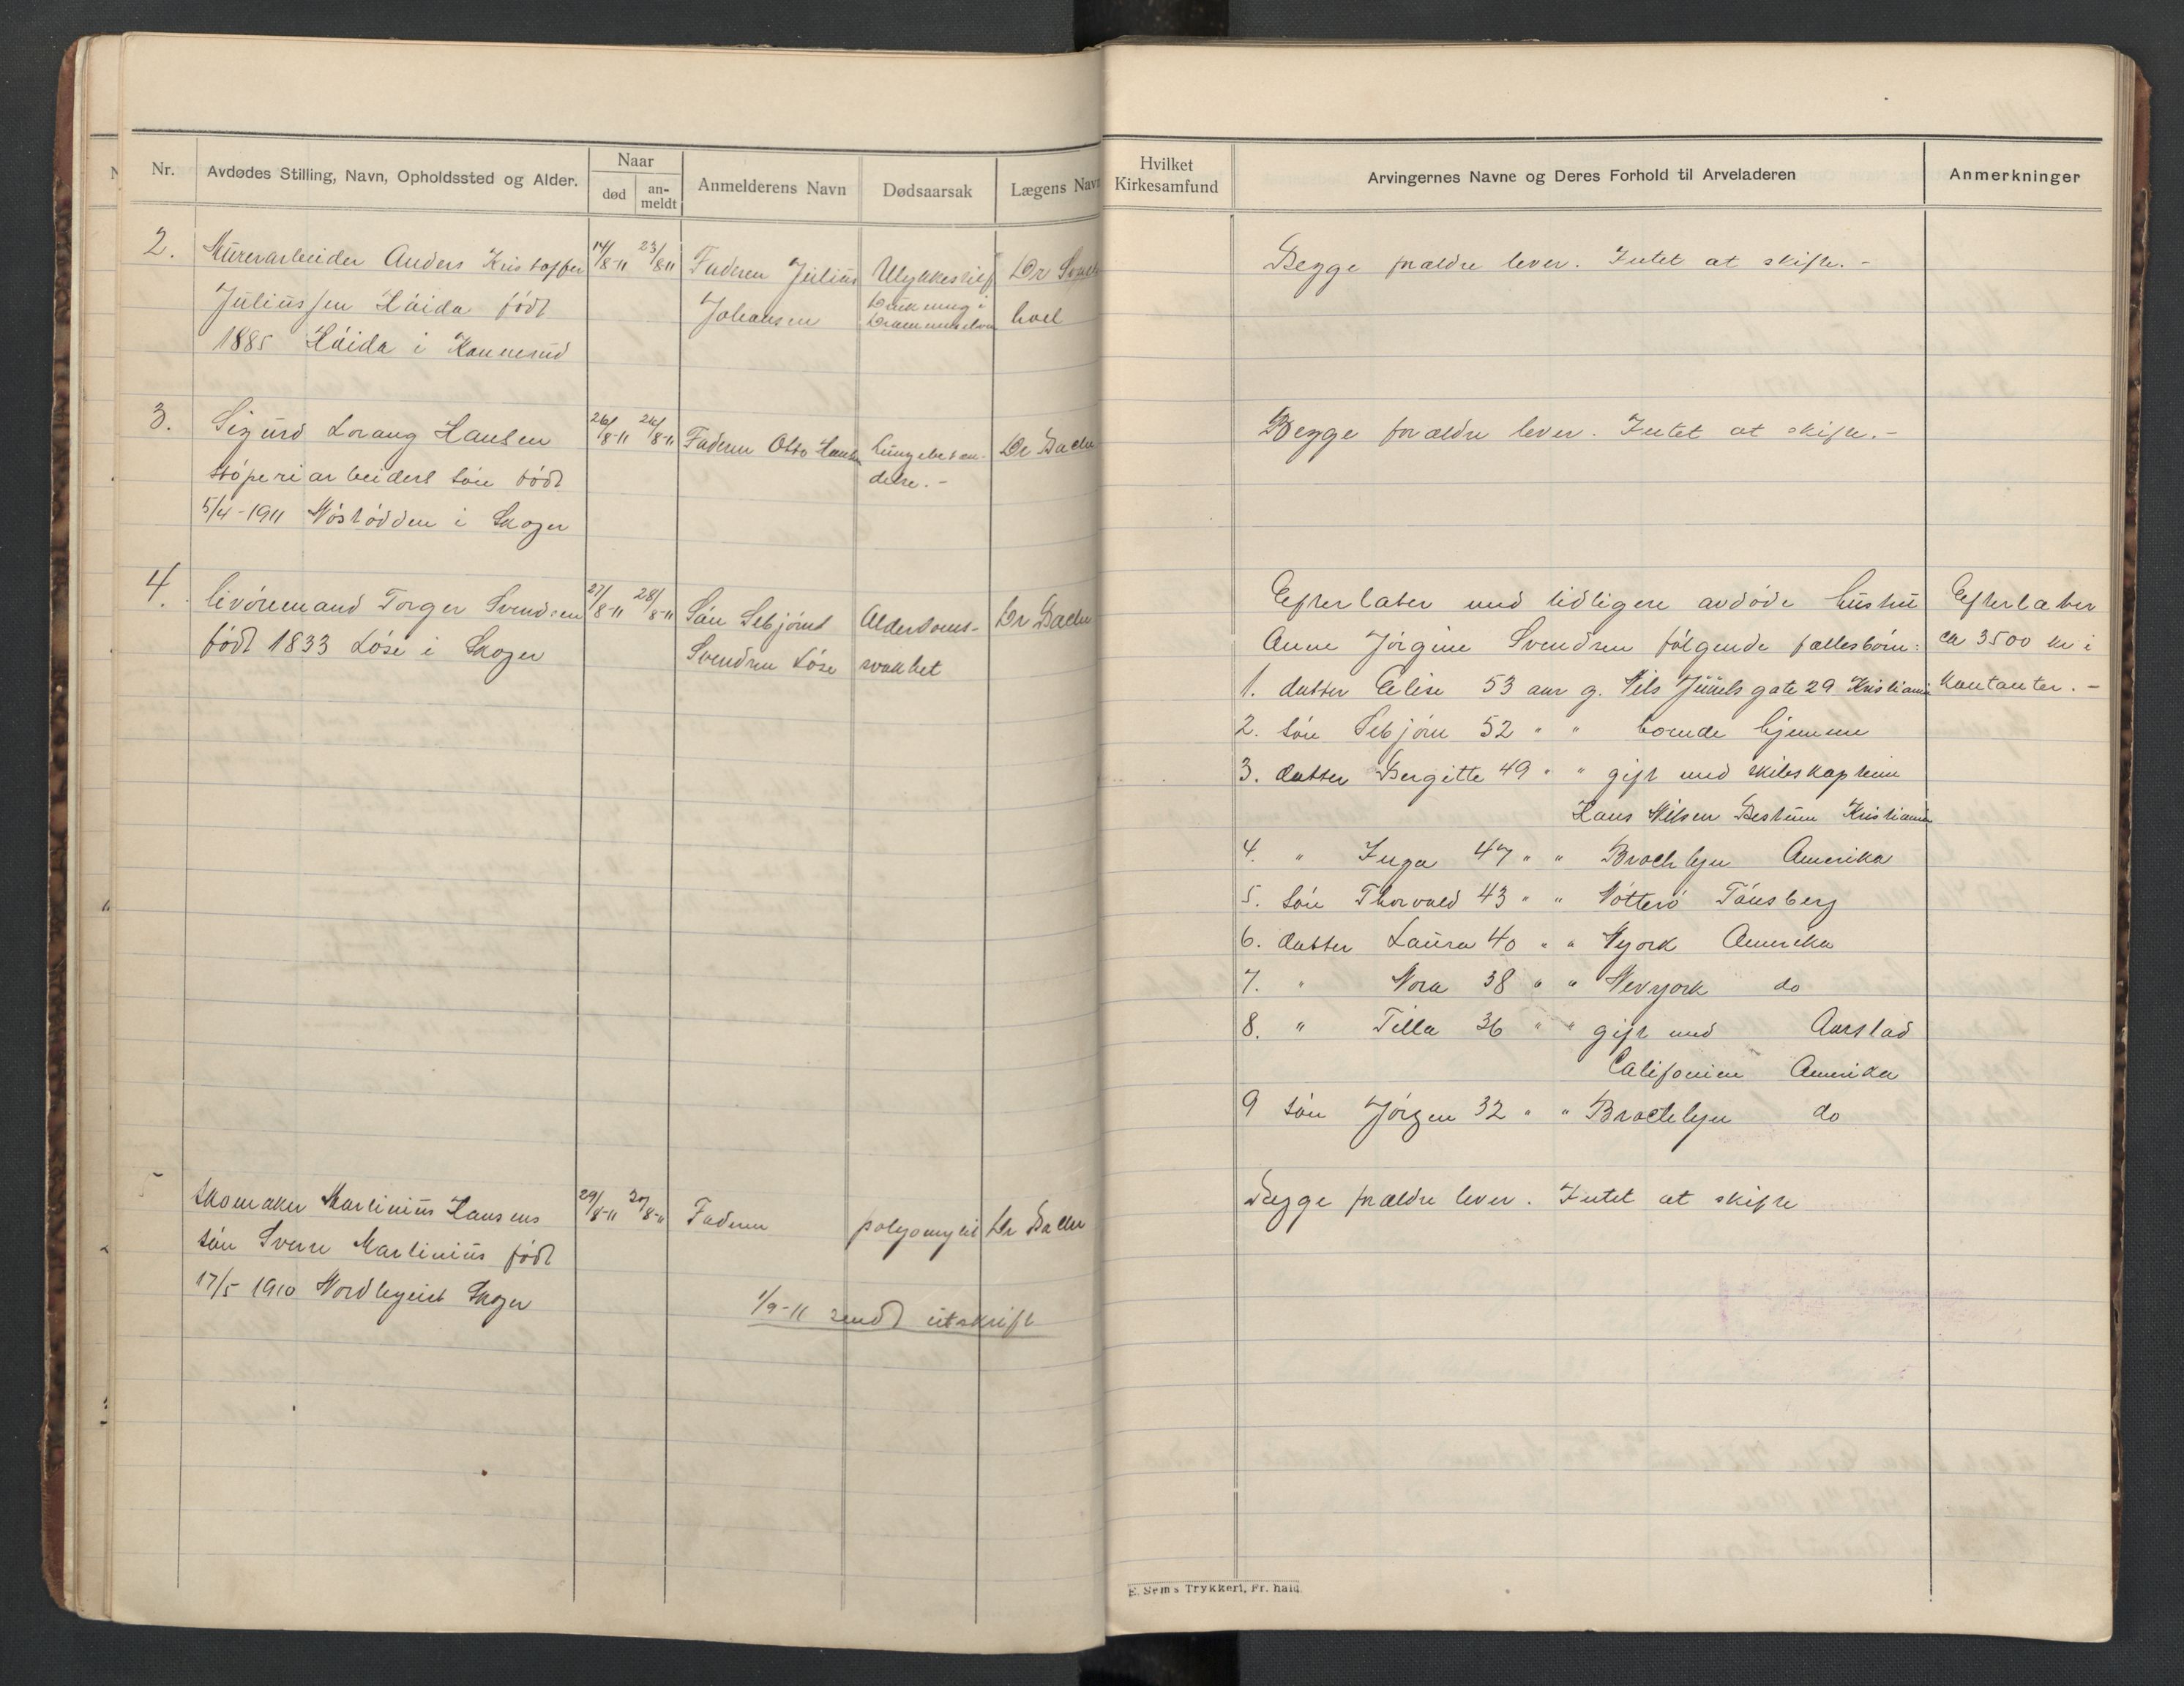 Nr.
Avdødes Stilling, Navn, Opholdssted og Alder.
Naar
død
an-
meldt
Anmelderens Navn
Dødsaarsak
Lægens Navn
Hvilket
Kirkesamfund
Arvingernes Navne og Deres Forhold til Arveladeren
Anmerkninger
2. Murerarbeider Anders Kristoffer 14/8-11 23/8-11 Faderen Julius Ulykkestilf Dr
Juliussen Håida født Johansen Drukning i Drammenselven
1885 Håida i Konnerud
Begge forældre lever. Intet at skifte. -
3. Sigurd Lorang Hansen 26/8-11 26/8-11 Faderen Otto Hansen Lungebeten- Dr
støperiarbeiders søn født delse. -
5/4-1911 Nøstødden i Skoger
Begge forældre lever. Intet at skifte. -
4. Livøremand Torger Svendsen 27/8-11 28/8-11 Søn Sebjørnt Alderdoms- Dr
født 1833 Løse i Skoger Svendsen Løse svakhet
Efterlater med tidligere avdøde hustru
Anne Jørgine Svendsen følgende fællesbørn:
1. datter Elise 53 aar g. Nils Juuels gate 29 Kristiania
2. søn Sebjørn 52 " " boende hjemme
3. datter Bergitte 49 " " gift med skibskaptein
Hans Nilsen Bestum Kristiania
4. " Inga 47 " " Brochlyn Amerika
5. søn Thorvald 43 " " Nøtterø Tønsberg
6. datter Laura 40 " " Nyork Amerika
7. " Nora 38 " " Nevyork do
8. " Tilla 36 " " gift med Aarstad
Califonien Amerika
9 søn Jørgen 32 " " Brochlyn do
Efterlater
ca 3500 kr i
kontanter. -
5 Skomaker Martinius Hansens 29/8-11 30/8-11 Faderen polyomylit Dr
søn Sverre Martinius født
17/5 1910 Nordbyeiet Skoger
1/9-11 sendt utskrift
Begge forældre lever. Intet at skifte
E. Sem's Trykkeri, Fr. hald.